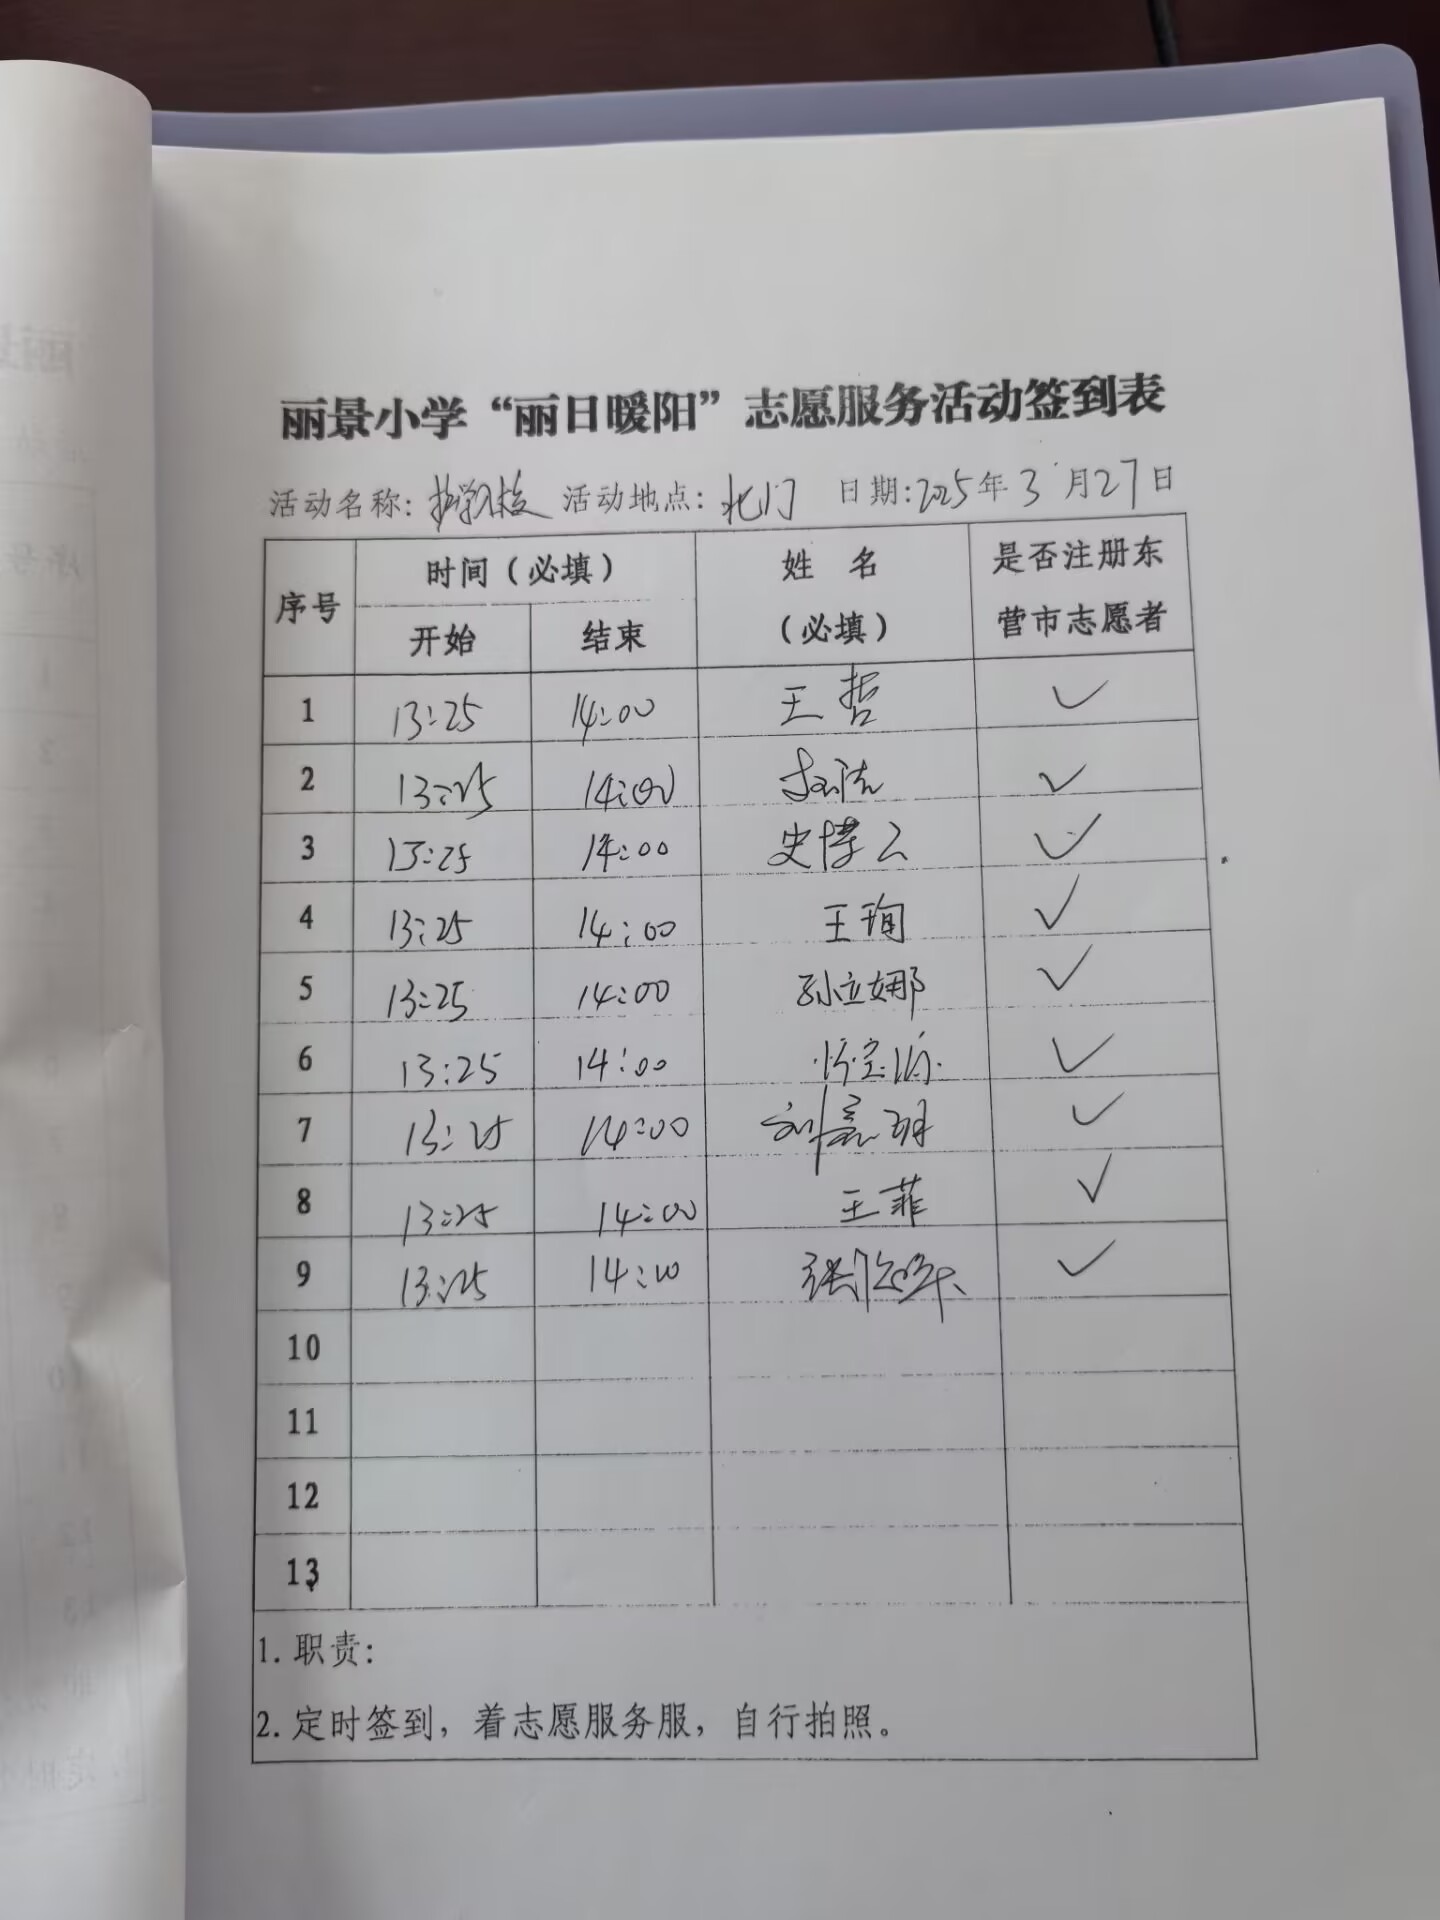 丽景小学“丽日暖阳”志愿服务活动签到表
活动名称: 护学入校 活动地点: 北门 日期: 2025年3月27日
序号 时间(必填) 姓 名 (必填) 是否注册东营市志愿者
开始 结束
1 13:25 14:00 王哲 ✓
2 13:25 14:00 ✓
3 13:25 14:00 史博云 ✓
4 13:25 14:00 王珣 ✓
5 13:25 14:00 孙立娜 ✓
6 13:25 14:00 ✓
7 13:25 14:00 刘嘉玥 ✓
8 13:25 14:00 王菲 ✓
9 13:25 14:00 ✓
10
11
12
13
1. 职责:
2. 定时签到，着志愿服务服，自行拍照。